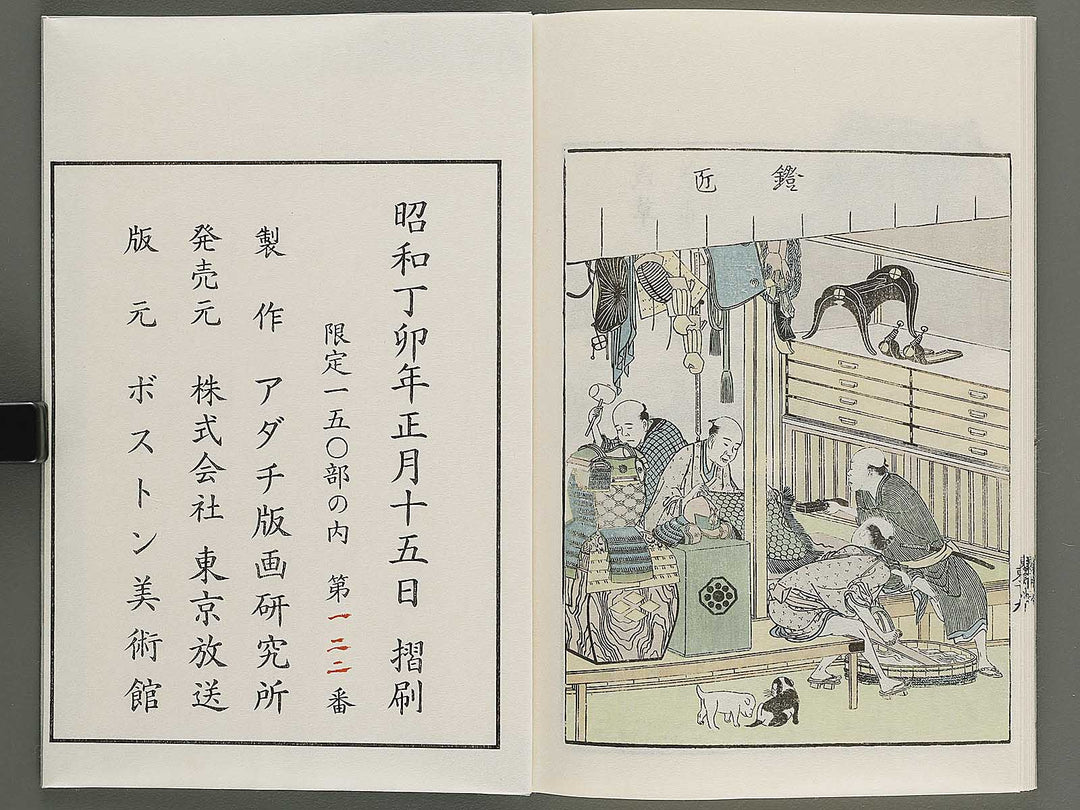 鐙 匠
昭和丁卯年正月十五日 摺刷
限定一五〇部の内 第一二二番
製作 アダチ版画研究所
発売元 株式会社 東京放送
版元 ボストン美術館